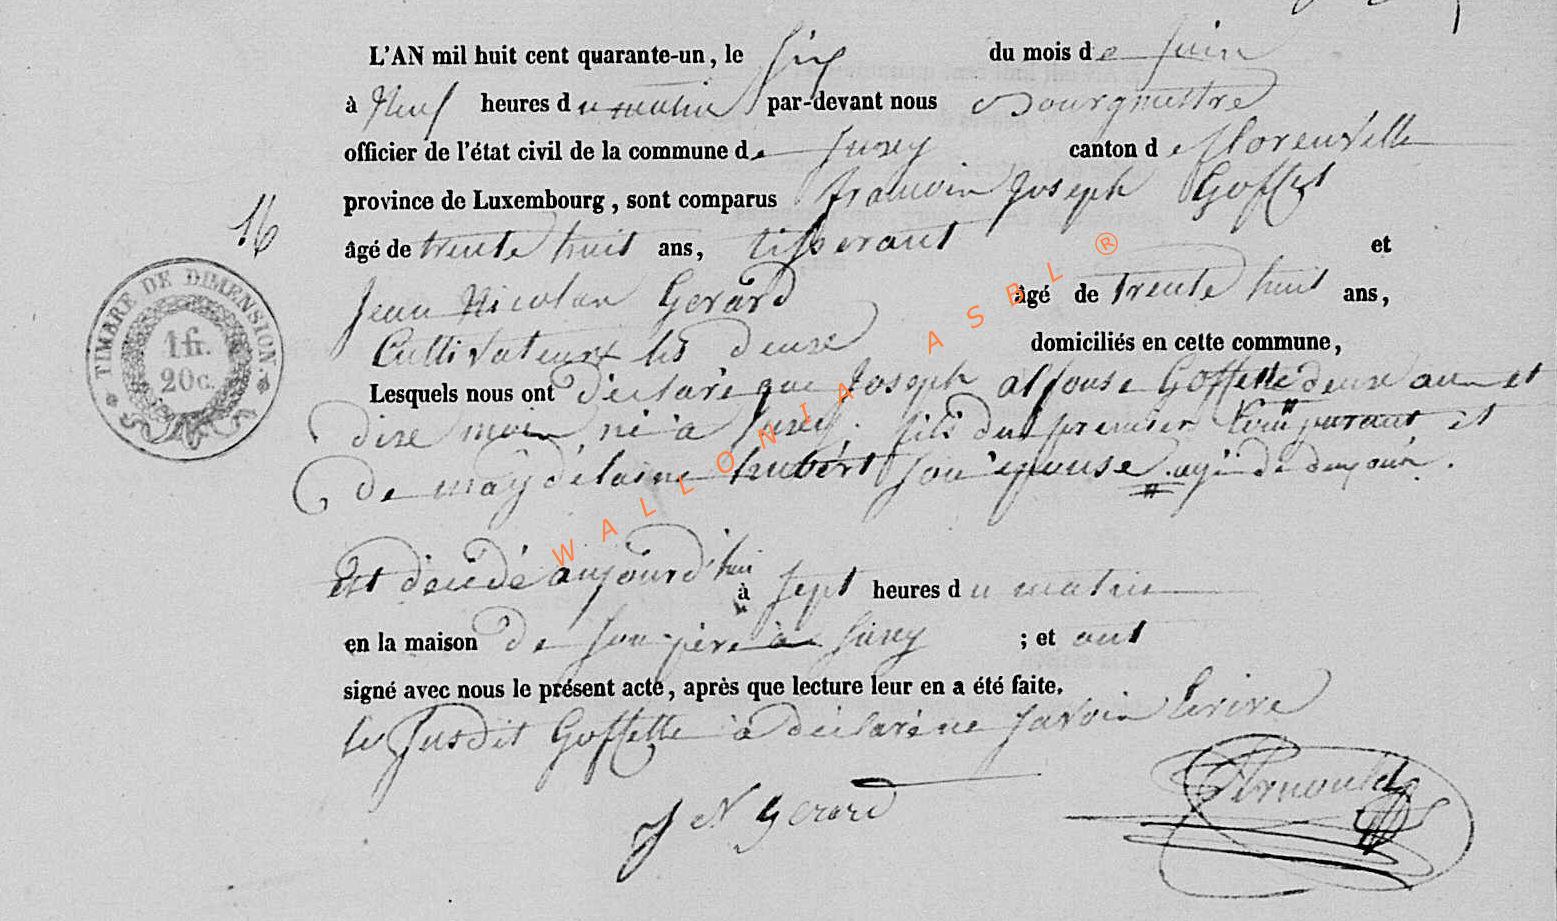 L'AN mil huit cent quarante-un, le six du mois de Juin
à Neuf heures du matin par-devant nous Bourgmestre
officier de l'état civil de la commune de Suxy canton de florenville
province de Luxembourg, sont comparus francois Joseph Goffet
16
âgé de trente huit ans, tisserant et
Jean Nicolas Gerard âgé de trente huit ans,
Cultivateurs les deux domiciliés en cette commune,
Lesquels nous ont déclaré que Joseph alfonse Goffette deux ans et
dix mois, né à Suxy. fils du premier Comparant et
de magdelaine hubért son épouse.
Est décédé aujourd'hui à Sept heures du matin
en la maison de son père à Suxy ; et ont
signé avec nous le présent acte, après que lecture leur en a été faite.
le Susdit Goffette à déclaré ne savoir Ecrire
J N Gerard
Arnould
TIMBRE DE DIMENSION.
1 fr.
20 c.
WALLONIA ASBL ®